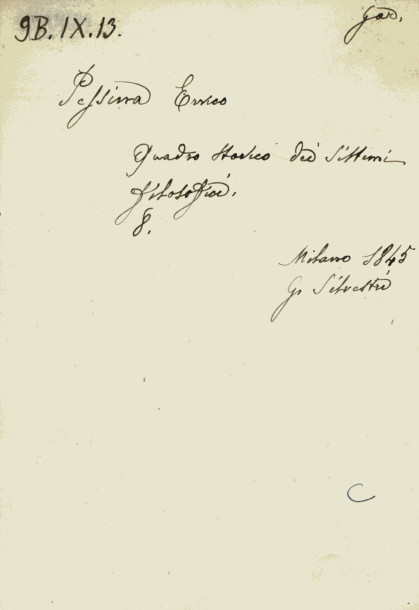 9B. IX. 13.
Gar.
Pessina Enrico
Quadro storico dei sistemi
filosofici.
8.
Milano 1845
G. Silvestri
C